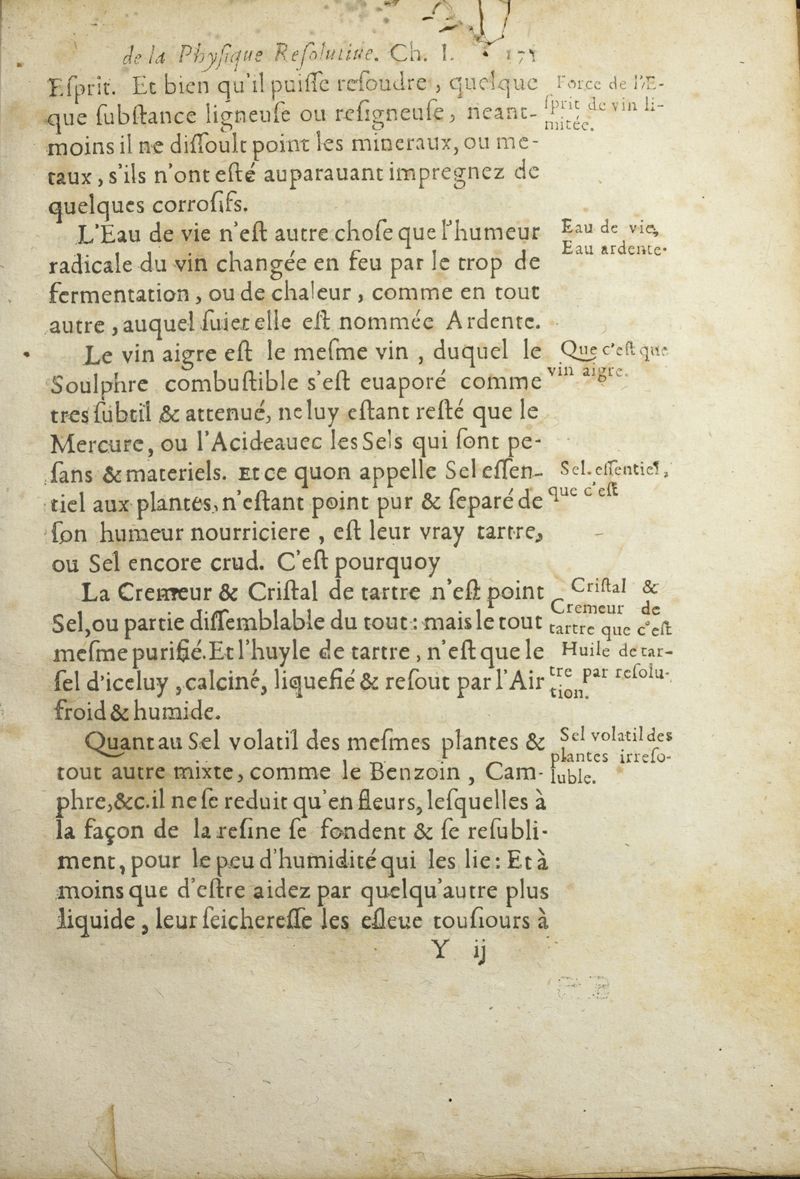 de la Phyſique Reſolutiue. Ch. I. 171
Eſprit. Et bien qu'il puiſſe reſoudre, quelque
que ſubſtance ligneuſe ou reſigneuſe, neant-
moins il ne diſſoult point les mineraux, ou me-
taux, s'ils n'ont eſté auparauant impregnez de
quelques corroſifs.
Force de l'E-
ſprit de vin li-
mitée.
L'Eau de vie n'eſt autre choſe que l'humeur
radicale du vin changée en feu par le trop de
fermentation, ou de chaleur, comme en tout
autre, auquel ſuiet elle eſt nommée Ardente.
Eau de vie,
Eau ardente.
Le vin aigre eſt le meſme vin, duquel le
Soulphre combuſtible s'eſt euaporé comme
tres ſubtil & attenué, ne luy eſtant reſté que le
Mercure, ou l'Acide auec les Sels qui ſont pe-
ſans & materiels. Et ce quon appelle Sel eſſen-
tiel aux plantes, n'eſtant point pur & ſeparé de
ſon humeur nourriciere, eſt leur vray tartre,
ou Sel encore crud. C'eſt pourquoy
Que c'eſt que
vin aigre.
Sel eſſentiel,
que c'eſt
La Cremeur & Criſtal de tartre n'eſt point
Sel, ou partie diſſemblable du tout : mais le tout
meſme purifié. Et l'huyle de tartre, n'eſt que le
ſel d'iceluy, calciné, liquefié & reſout par l'Air
froid & humide.
Criſtal &
Cremeur de
tartre que c'eſt
Huile de tar-
tre par reſolu-
tion.
Quant au Sel volatil des meſmes plantes &
tout autre mixte, comme le Benzoin, Cam-
phre, &c. il ne ſe reduit qu'en fleurs, leſquelles à
la façon de la reſine ſe fondent & ſe reſubli-
ment, pour le peu d'humidité qui les lie : Et à
moins que d'eſtre aidez par quelqu'autre plus
liquide, leur ſeichereſſe les eſleue touſiours à
Sel volatil des
plantes irreſo-
luble.
Y ij